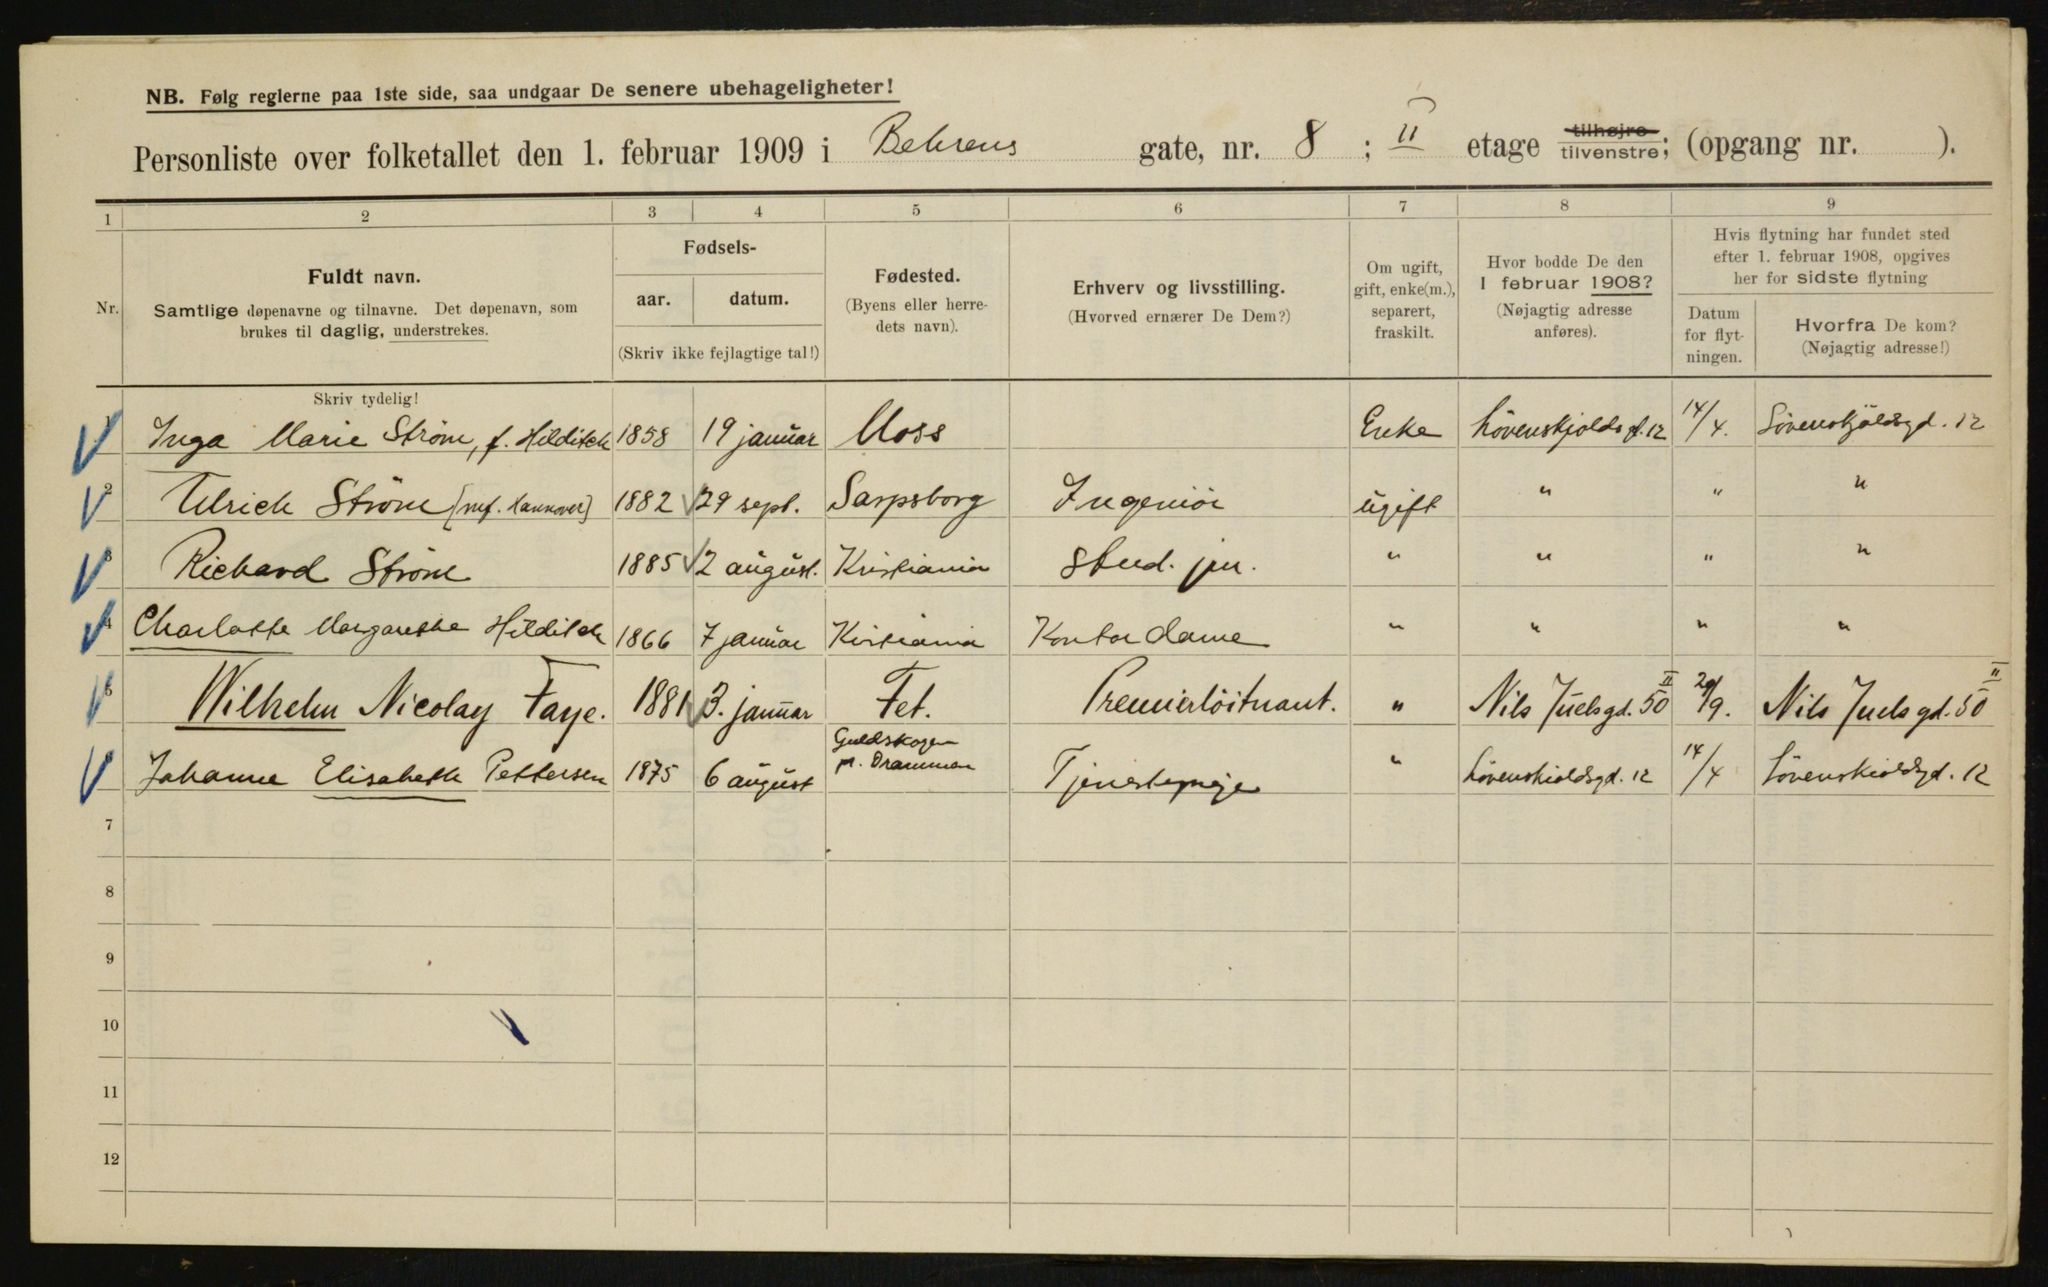 NB. Følg reglerne paa 1ste side, saa undgaar De senere ubehageligheter!
Personliste over folketallet den 1. februar 1909 i Behrens gate, nr. 8 ; II etage tilhøjre tilvenstre; (opgang nr. ).
1 2 3 4 5 6 7 8 9
Nr.
Fuldt navn.
Samtlige døpenavne og tilnavne. Det døpenavn, som
brukes til daglig, understrekes.
Fødsels-
aar. datum.
(Skriv ikke fejlagtige tal!)
Fødested.
(Byens eller herre-
dets navn).
Erhverv og livsstilling.
(Hvorved ernærer De Dem?)
Om ugift,
gift, enke(m.),
separert,
fraskilt.
Hvor bodde De den
1 februar 1908?
(Nøjagtig adresse
anføres).
Hvis flytning har fundet sted
efter 1. februar 1908, opgives
her for sidste flytning
Datum
for flyt-
ningen.
Hvorfra De kom?
(Nøjagtig adresse!)
Skriv tydelig!
1 Inga Marie Strøm, f. Hilditch 1858 19 januar Moss Enke Løvenskjoldsgd. 12 14/4. Løvenskjoldsgd. 12
2 Ulrich Strøm [ Hannover] 1882 29 sept. Sarpsborg Ingeniör ugift " " "
3 Richard Strøm 1885 2 august. Kristiania Stud. jur. " " " "
4 Charlotte Margarethe Hilditch 1866 7 januar Kristiania Kontordame " " " "
5 Wilhelm Nicolay Faye. 1881 3. januar Fet. Premierlöitnant. " Nils Juelsgd. 50 II 29/9. Nils Juelsgd. 50 II
6 Johanne Elisabeth Pettersen 1875 6 august Guldskogen pr. Drammen Tjenestepige " Løvenskioldsgd. 12 14/4 Løvenskioldsgd. 12
7
8
9
10
11
12